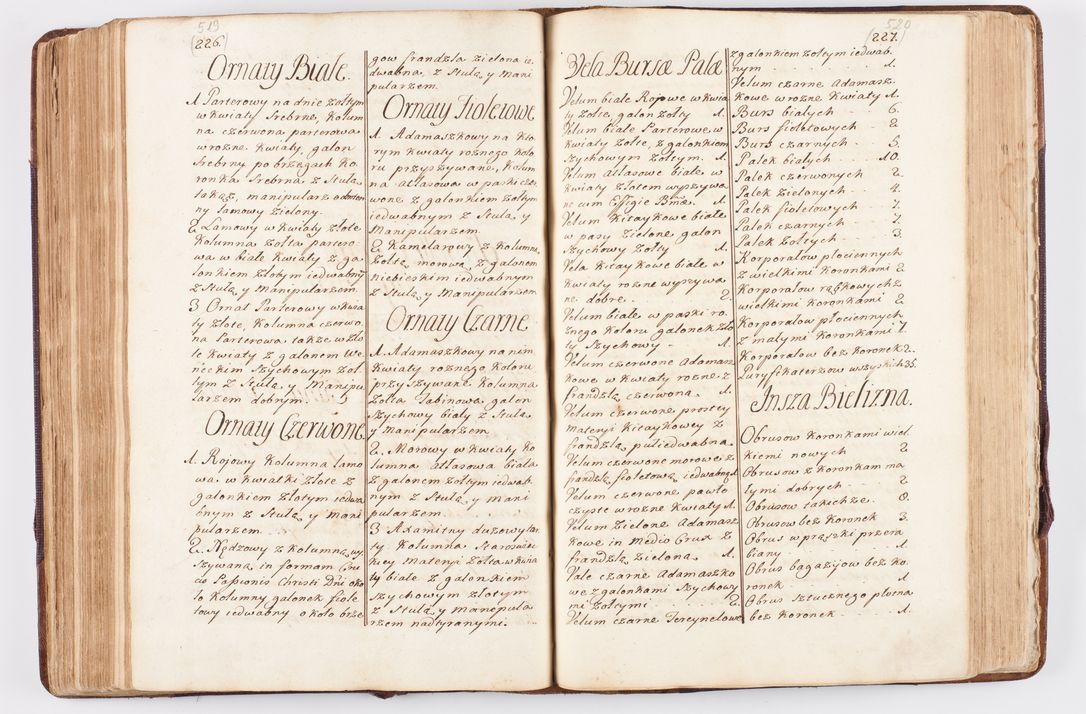 519
(226.)
Ornaty Białe.
1. Parterowy na dnie żołtym
w kwiaty srebrne, kolum
na czerwona parterowa
w rożne kwiaty, galon
srebrny po brzegach ko
ronka srebrna z stulą
takąż, manipularz odmien
ny lamowy zielony.
2. Lamowy w kwiaty złote
kolumna żołta partero
wa w białe kwiaty z ga
lonkiem złotym iedwabny
z stulą, y manipularzem.
3 Ornat Parterowy w kwia
ty złote, kolumna czerwo,
na Parterowa także w zło
te kwiaty z galonem We
neckim szychowym żoł
tym z stulą y Manipu
larzem dobrym.
Ornaty Czerwone
1. Rojowy kolumna lamo
wa w kwiatki złote z
galonkiem złotym iedwa
bnym z stulą y mani
pularzem.
2. Nędzowy z kolumną wy
szywaną in formam Cru
cis Passionis Christi Dni oko
ło kolumny galonek fiole
towy iedwabny około brze
gow frandzla zielona ie
dwabna, z stulą y Mani
pularzem.
Ornaty Fioletowe
1. Adamaszkowy na kto
rym kwiaty rożnego kolo
ru przyszywane, kolum
na atłasowa w paski czer
wone z galonkiem żołtym
iedwabnym z stulą y
Manipularzem.
2. Kamelarowy z kolumną
żołtą morową z galonem
niebieskim iedwabnym
z stulą y Manipularzem
Ornaty Czarne
1. Adamaszkowy na nim
kwiaty rożnego koloru
przyszywane kolumna
żołta Tabinowa galon
szychowy biały z stulą
y Manipularzem.
2. Morowy w kwiaty ko
lumna atłasowa biała
z galonem żołtym iedwab
nym z stulą y Mani
pularzem.
3 Axamitny
ty kolumna staroswie
ckiey materyi żołta w kwia
ty białe z galonkiem
szychowym złotym
z stulą y manipula
rzem nadtyranymi.
520
227.
Vela Bursæ Palæ
Velum białe Rojowe w kwia
ty żołte, galon żołty 1.
Velum białe Parterowe, w
kwiaty żołte, z galonkiem
szychowym żołtym. 1.
Velum Atłasowe białe w
kwiaty złotem wyszywa
ne cum Effigie Bmæ. 1.
Velum kitaykowe białe
w pasy zielone galon
szychowy żołty 1.
Vela kitaykowe białe w
kwiaty rożne wyszywa
ne dobre. 2.
Velum białe w paski ro
żnego koloru galonek zło
ty szychowy - 1.
Velum czerwone Adamasz
kowe w kwiaty rożne z
frandzlą czerwoną 1.
Velum czerwone prostey
materyi kitaykowey z
frandzlą pułiedwabną.
Velum czerwone morowe z
frandzlą fioletową iedwabną 1
Velum czerwone pawło
czyste w rożne kwiaty 1.
Velum zielone Adamasz
kowe in Medio Crux z
frandzlą zieloną 1.
Vale czarne Adamaszko
we z galonkami szychowy
mi żołtymi . . . . . . 2.
Velum czarne Tereynelowe
z galonkiem żołtym iedwab.
nym . . . . . . 1.
Velum czarne Adamasz.
kowe w rożne kwiaty 1.
Burs białych . . 6.
Burs fioletowych . . 2.
Burs czarnych . . 5.
Palek białych . . . . 10.
Palek czerwonych 2.
Palek zielonych . . 4.
Palek fioletowych . . 7.
Palek czarnych . . 7.
Palek żołtych . . 3.
Korporałow płociennych
z wielkimi koronkami 2.
Korporałow rąbkowych z
wielkimi koronkami 2
Korporałow płociennych
z małymi koronkami 7.
Korporałow bez koronek 2.
Puryfikaterzow wszyskich 35.
Insza Bielizna.
Obrusow koronkami wiel
kiemi nowych 2
Obrusow z koronkam ma
łymi dobrych . . 2
Obrusow takichże. 8.
Obrusow bez koronek 3.
Obrus w prążki przera
biany . . . . . . 1.
Obrus bagażyjow bez ko.
ronek . . . . . . 1
Obrus sztucznego płotna
bez koronek . . . . 1.